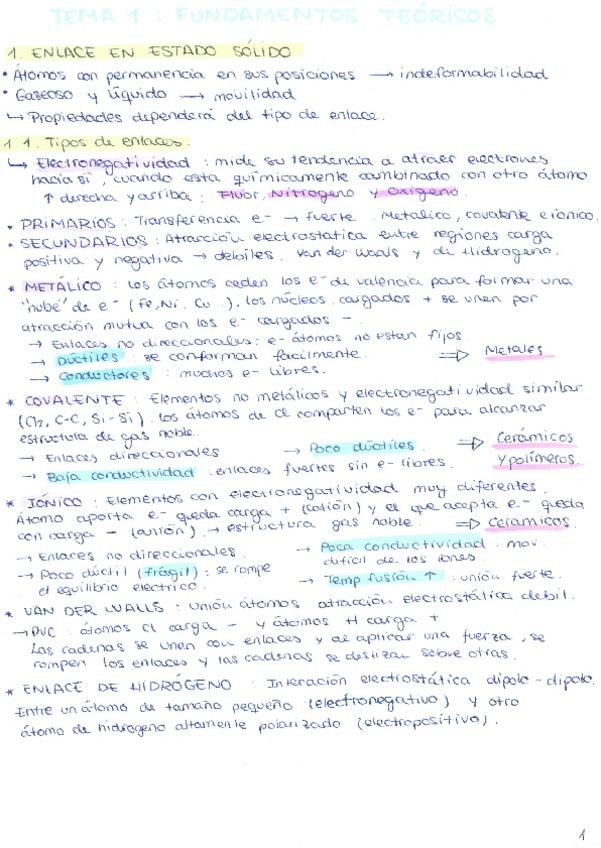 TEMA 1 : FUNDAMENTOS TEÓRICOS
1. ENLACE EN ESTADO SÓLIDO
• Átomos con permanencia en sus posiciones → indeformabilidad
• Gaseoso y líquido → movilidad
↳ Propiedades dependerá del tipo de enlace.
1.1. Tipos de enlaces.
↳ Electronegatividad : mide su tendencia a atraer electrones
hacia sí, cuando esta químicamente combinado con otro átomo
↑ derecha y arriba : Fluor, Nitrogeno y Oxigeno.
• PRIMARIOS : Transferencia e- → fuerte. Metalico, covalente e iónico.
• SECUNDARIOS : Atracción electrostática entre regiones carga
positiva y negativa → debiles. Van der Waals y de Hidrogeno.
* METÁLICO : los átomos ceden los e- de valencia para formar una
"nube" de e- (Fe, Ni, Cu...), los núcleos cargados + se unen por
atracción mutua con los e- cargados -
→ Enlaces no direccionales : e- átomos no estan fijos
→ Dúctiles : se conforman facilmente. ⇒ Metales
→ Conductores : muchos e- libres.
* COVALENTE : Elementos no metálicos y electronegatividad similar
(Cl2, C-C, Si-Si). los átomos de Cl comparten los e- para alcanzar
estructura de gas noble.
→ Enlaces direccionales → Poco dúctiles. ⇒ Cerámicos
→ Baja conductividad : enlaces fuertes sin e- libres. y polímeros.
* IÓNICO : Elementos con electronegatividad muy diferentes.
Átomo aporta e- queda carga + (catión) y el que acepta e- queda
con carga - (anión) → estructura gas noble. ⇒ Ceramicos.
→ Enlaces no direccionales. → Poca conductividad. mov.
dificil de los iones.
→ Poco dúctil (frágil) : se rompe
el equilibrio electrico. → Temp fusión ↑ : unión fuerte.
* VAN DER WALLS : unión átomos atracción electrostática debil.
→ PVC : átomos Cl carga - y átomos H carga +
Las cadenas se unen con enlaces y al aplicar una fuerza, se
rompen los enlaces y las cadenas se deslizan sobre otras.
* ENLACE DE HIDRÓGENO : Interación electrostática dipolo-dipolo.
Entre un átomo de tamaño pequeño (electronegativo) y otro
átomo de hidrogeno altamente polarizado (electropositivo).
1